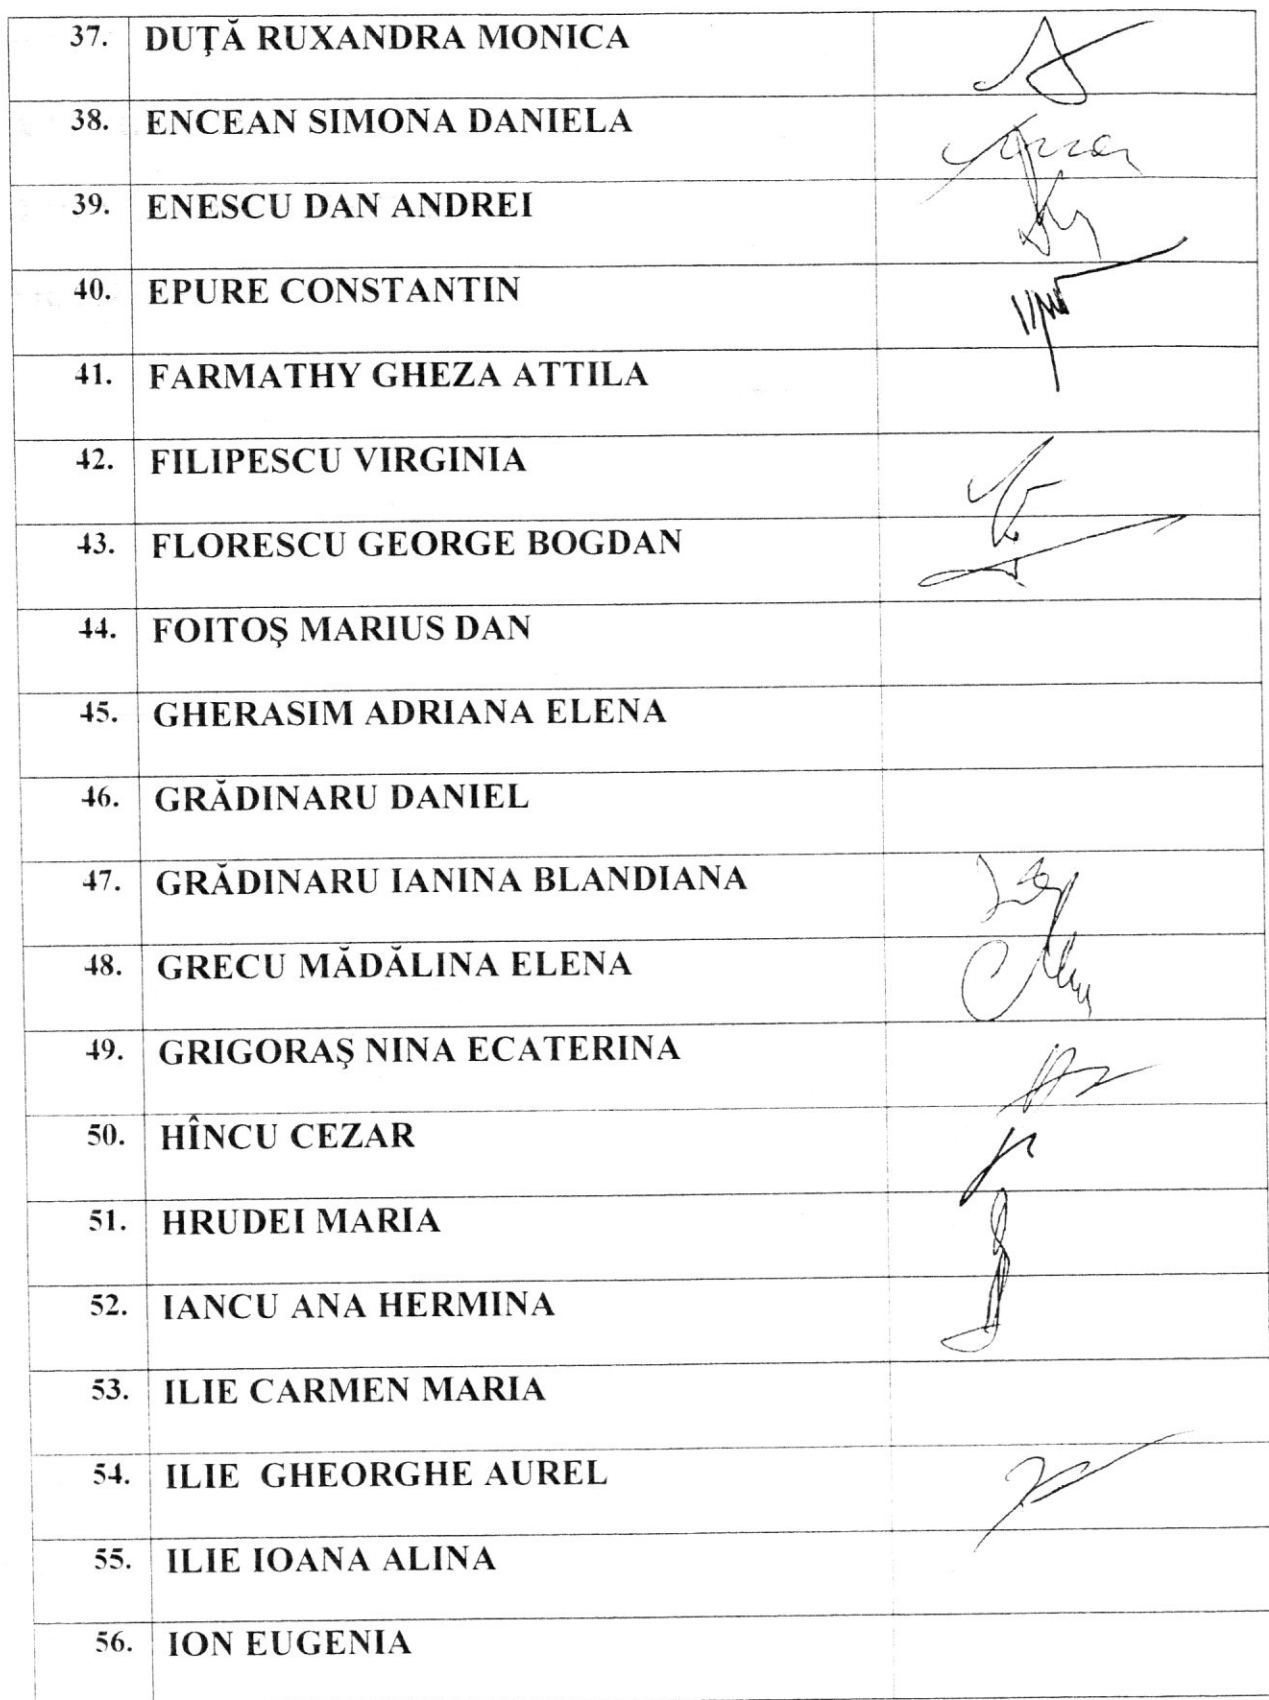 37. DUŢĂ RUXANDRA MONICA
38. ENCEAN SIMONA DANIELA
39. ENESCU DAN ANDREI
40. EPURE CONSTANTIN
41. FARMATHY GHEZA ATTILA
42. FILIPESCU VIRGINIA
43. FLORESCU GEORGE BOGDAN
44. FOITOŞ MARIUS DAN
45. GHERASIM ADRIANA ELENA
46. GRĂDINARU DANIEL
47. GRĂDINARU IANINA BLANDIANA
48. GRECU MĂDĂLINA ELENA
49. GRIGORAŞ NINA ECATERINA
50. HÎNCU CEZAR
51. HRUDEI MARIA
52. IANCU ANA HERMINA
53. ILIE CARMEN MARIA
54. ILIE GHEORGHE AUREL
55. ILIE IOANA ALINA
56. ION EUGENIA